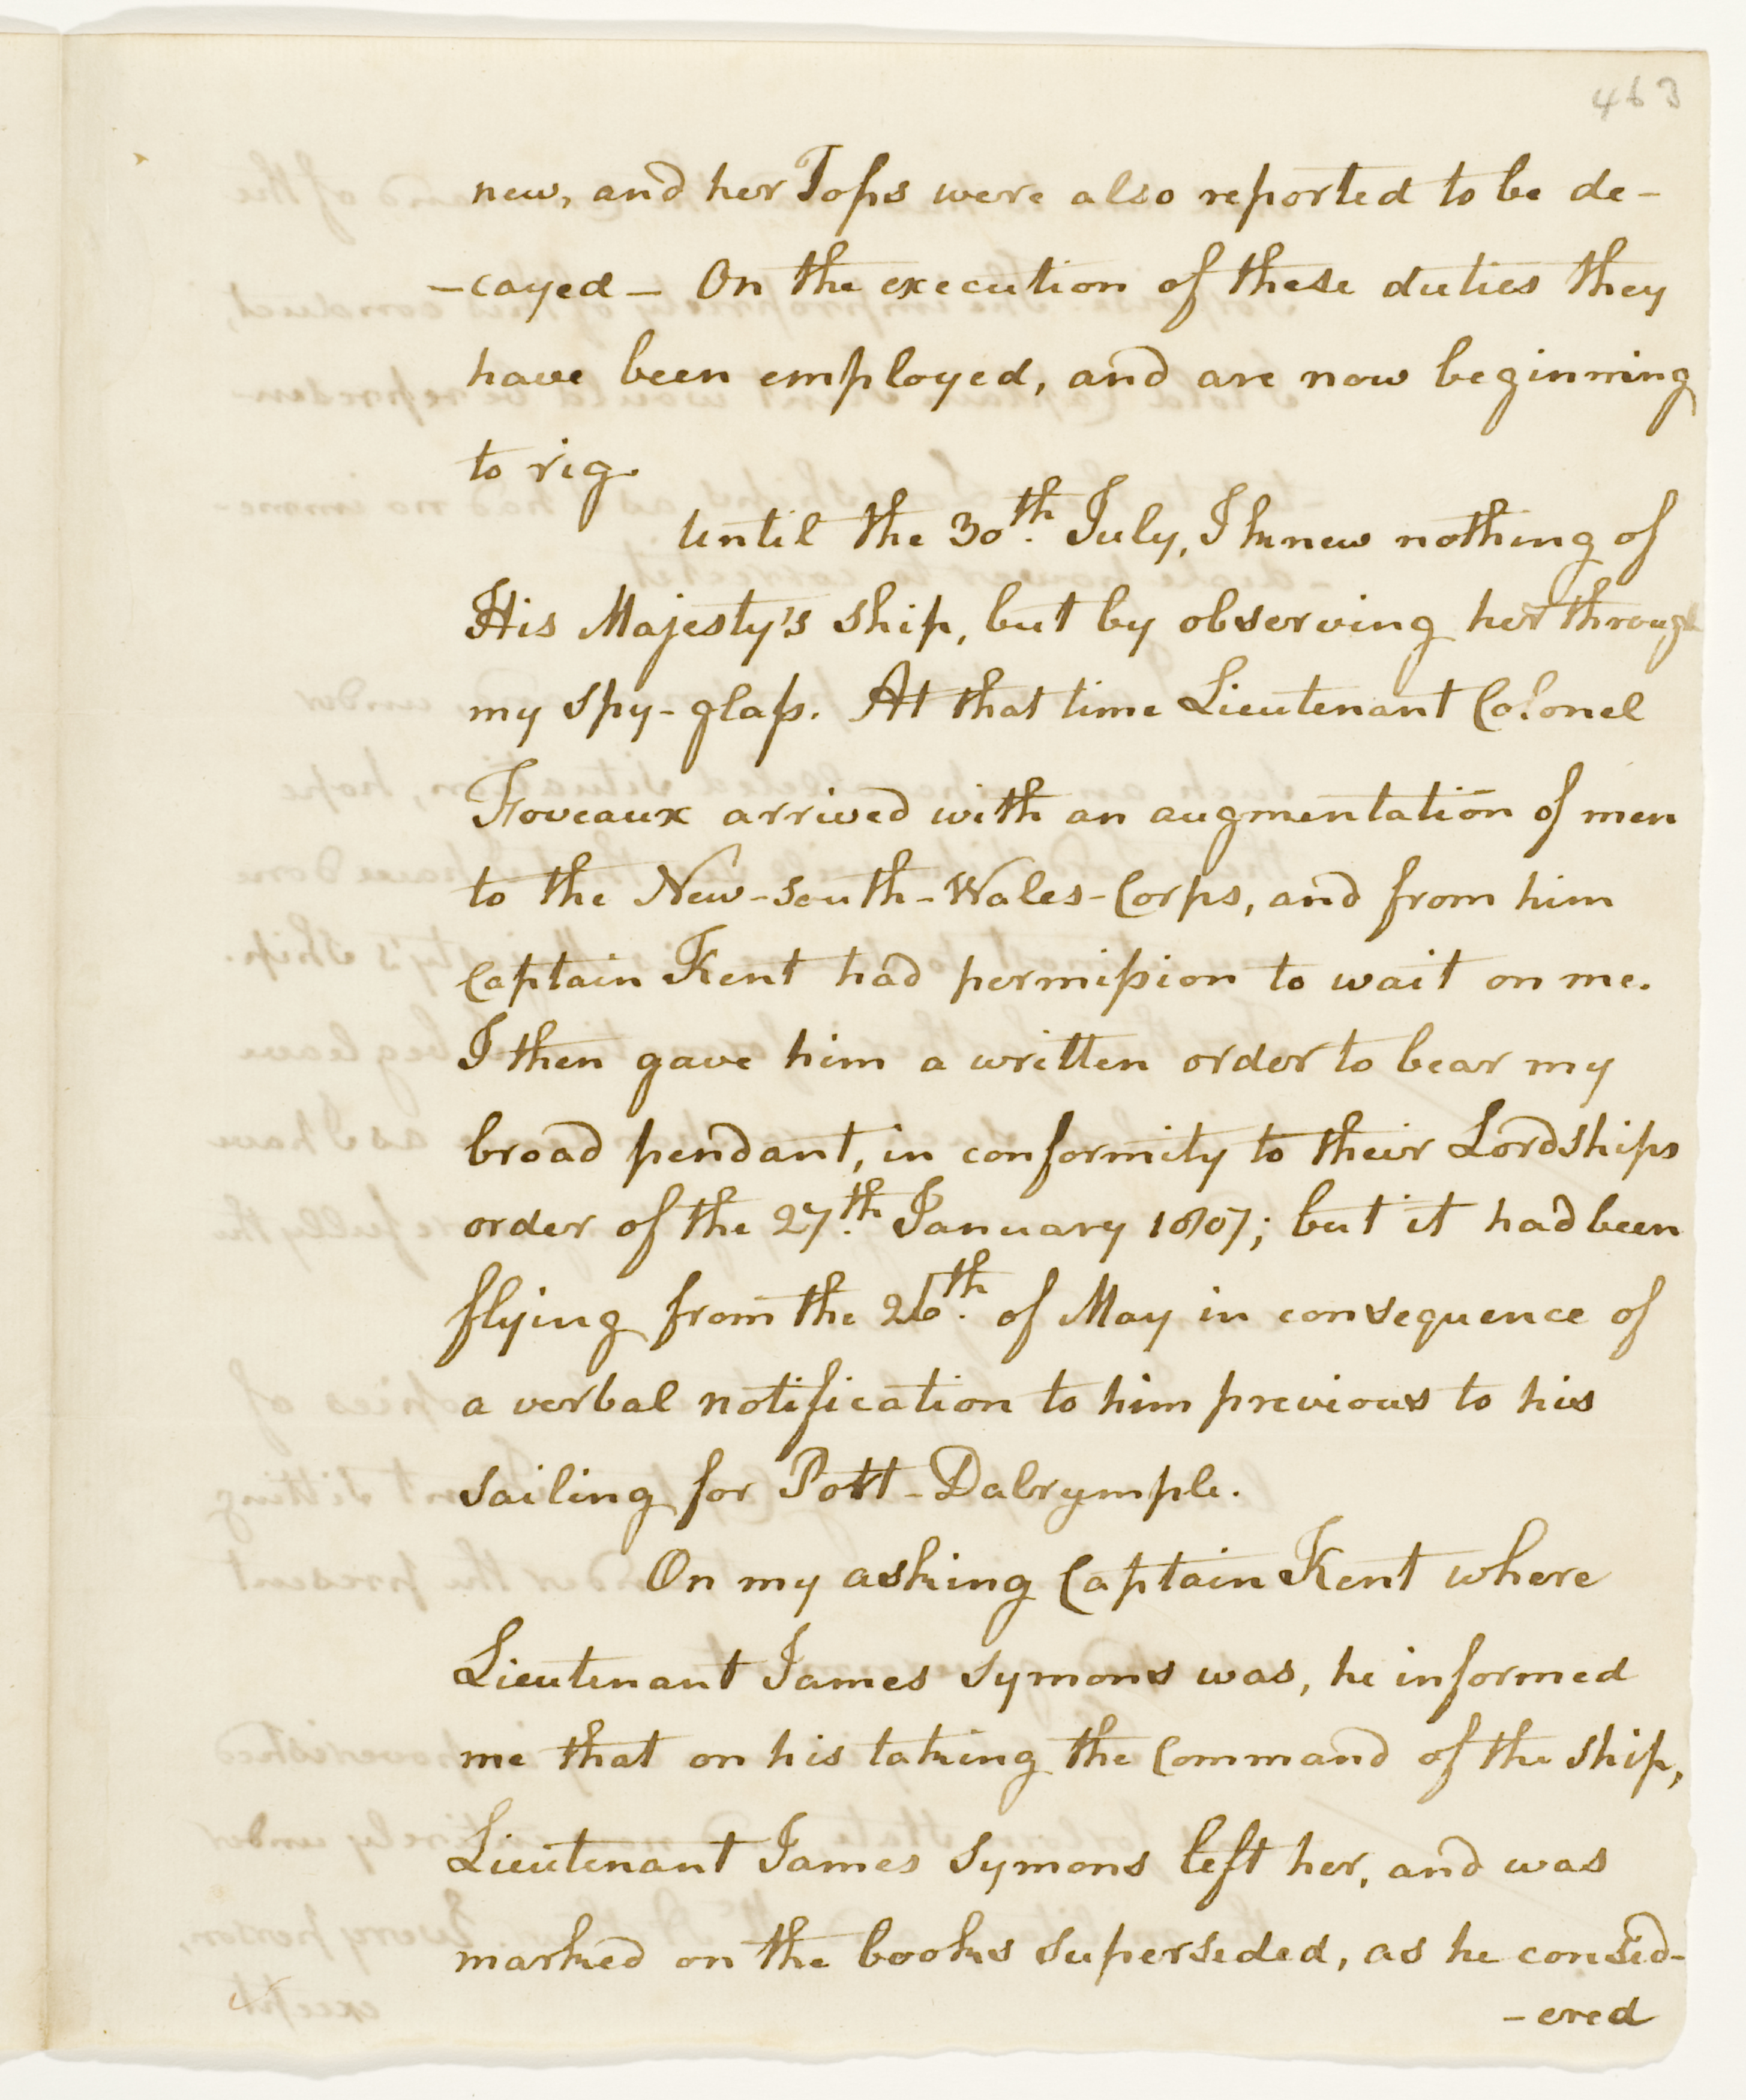 463
new, and her Tops were also reported to be de-
-cayed- On the execution of these duties they
have been employed, and are now beginning
to rig.
Until the 30th. July, I knew nothing of
His Majesty's ship, but by observing her through
my spy-glass. At that time Lieutenant Colonel
Foveaux arrived with an augmentation of men
to the New-south-Wales-Corps, and from him
Captain Kent had permission to wait on me.
I then gave him a written order to bear my
broad pendant, in conformity to their Lordships
order of the 27th. January 1807; but it had been
flying from the 26th. of May in consequence of
a verbal notification to him previous to his
sailing for Port-Dalrymple.
On my asking Captain Kent where
Lieutenant James Symons was, he informed
me that on his taking the Command of the ship,
Lieutenant James Symons left her, and was
marked on the books superseded, as he consid-
-ered